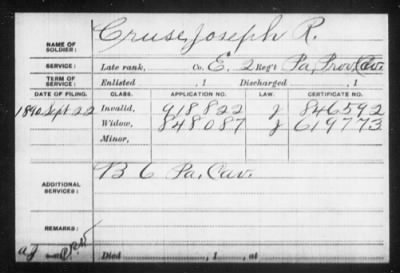 NAME OF SOLDIER: Cruse, Joseph R.
SERVICE: Late rank, Co. E, 2 Reg't Pa, Prov, Cav.
TERM OF SERVICE: Enlisted , 1 Discharged , 1
DATE OF FILING. CLASS. APPLICATION NO. LAW. CERTIFICATE NO.
1890 Sept 22 Invalid, 918822 J 846592
Widow, 848087 J 619773
Minor,
ADDITIONAL SERVICES: B 6 Pa. Cav.
REMARKS:
Died , 1 , at